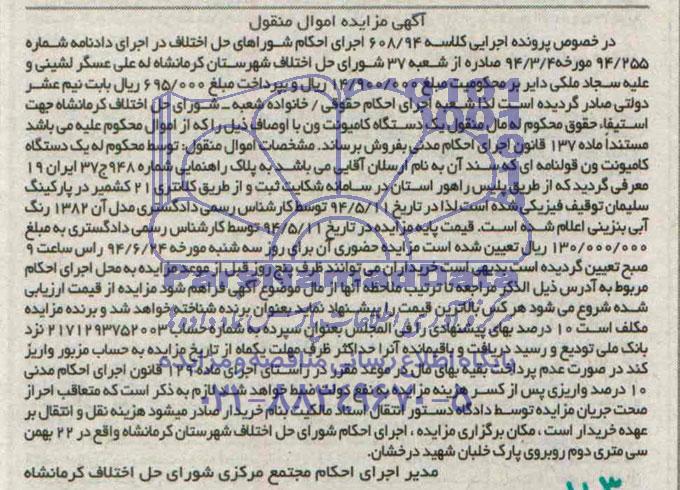 آگهی مزایده اموال منقول
در خصوص پرونده اجرایی کلاسه ۶۰۸/۹۴ اجرای احکام شوراهای حل اختلاف در اجرای دادنامه شماره
۹۴/۲۵۵ مورخه۹۴/۳/۴ صادره از شعبه ۳۷ شورای حل اختلاف شهرستان کرمانشاه له علی عسگر لشینی و
علیه سجاد ملکی دایر بر محکومیت مبلغ ۱۴/۹۰۰/۰۰۰ ریال و پرداخت مبلغ ۶۹۵/۰۰۰ ریال بابت نیم عشر
دولتی صادر گردیده است لذا شعبه اجرای احکام حقوقی / خانواده شعبه ـ شورای حل اختلاف کرمانشاه جهت
استیفاء حقوق محکوم له مال منقول یک دستگاه کامیونت ون با اوصاف ذیل را که از اموال محکوم علیه می باشد
مستندا ماده ۱۳۷ قانون اجرای احکام مدنی بفروش برساند. مشخصات اموال منقول: توسط محکوم له یک دستگاه
کامیونت ون قولنامه ای که سند آن به نام ارسلان آقایی می باشد به پلاک راهنمایی شماره ۹۴۸ج۳۷ ایران ۱۹
معرفی گردید که از طریق پلیس راهور استان در سامانه شکایت ثبت و از طریق کلانتری ۲۱ کشمیر در پارکینگ
سلیمان توقیف فیزیکی شده است لذا در تاریخ ۹۴/۵/۱۰ توسط کارشناس رسمی دادگستری مدل آن ۱۳۸۲ رنگ
آبی بنزینی اعلام شده است. قیمت پایه مزایده در تاریخ ۹۴/۵/۱۱ توسط کارشناس رسمی دادگستری به مبلغ
۱۳۰/۰۰۰/۰۰۰ ریال تعیین شده است مزایده حضوری آن برای روز سه شنبه مورخه ۹۴/۶/۲۴ راس ساعت ۹
صبح تعیین گردیده است بدیهی است خریداران می توانند ظرف پنج روز قبل از موعد مزایده به محل اجرای احکام
مربوط به آدرس ذیل الذکر مراجعه تا ترتیب ملاحظه آنها از مال موضوع آگهی فراهم شود مزایده از قیمت ارزیابی
شده شروع می شود هر کس بالاترین قیمت را پیشنهاد نماید بعنوان برنده شناخته خواهد شد و برنده مزایده
مکلف است ۱۰ درصد بهای پیشنهادی را فی المجلس بعنوان سپرده به شماره حساب ۲۱۷۱۲۹۳۷۵۲۰۰۳ نزد
بانک ملی تودیع و رسید دریافت و باقیمانده آنرا حداکثر ظرف مهلت یکماه از تاریخ مزایده به حساب مزبور واریز
کند در صورت عدم پرداخت بقیه بهای مال در موعد مقرر در راستای اجرای ماده ۱۲۹ قانون اجرای احکام مدنی
۱۰ درصد واریزی پس از کسر هزینه مزایده به نفع دولت ضبط خواهد شد. لازم به ذکر است که متعاقب احراز
صحت جریان مزایده توسط دادگاه دستور انتقال اسناد مالکیت بنام خریدار صادر میشود هزینه نقل و انتقال بر
عهده خریدار است ، مکان برگزاری مزایده ، اجرای احکام شورای حل اختلاف شهرستان کرمانشاه واقع در ۲۲ بهمن
سی متری دوم روبروی پارک خلبان شهید درخشان.
مدیر اجرای احکام مجتمع مرکزی شورای حل اختلاف کرمانشاه
پایگاه اطلاع رسانی مناقصه و مزایده
۰۲۱-۸۸۳۴۹۶۷۰-۵